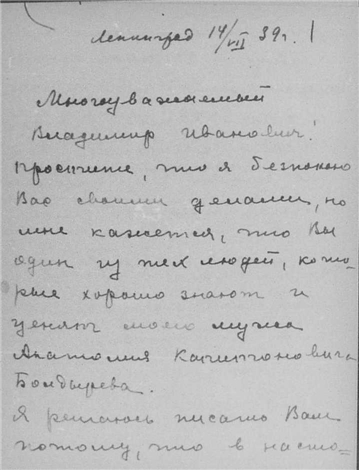 Ленинград 14/VII 39 г.
Многоуважаемый
Владимир Иванович!
Простите, что я безпокою
Вас своими делами, но
мне кажется, что Вы
один из тех людей, кото-
рые хорошо знают и
ценят моего мужа
Анатолия Капитоновича
Болдырева.
Я решаюсь писать Вам
потому, что в насто-